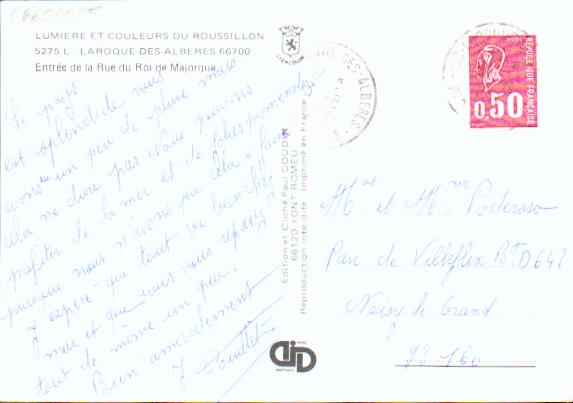 LUMIERE ET COULEURS DU ROUSSILLON
5275 L - LAROQUE-DES-ALBERES 66700
Entrée de la Rue du Roi de Majorque
LYS-COLOR
Le pays
est splendide nous
avons un peu de pluie mais
cela ne dure pas. Nous pouvons
profiter de la mer et de jolies promenades
puisque nous n'avons que cela à faire.
J'espère que tout va bien chez
et que vous vous reposez
tout de même un peu.
Bien amicalement
Edition et Cliché Paul GOUDIN
66120 FONT-ROMEU
Reproduction interdite Imprimé en France
DES-ALBERES
REPUBLIQUE FRANÇAISE
0,50
et Mr Poderoso
Parc de Villeflix Bt D 642
Noisy le Grand
93 160